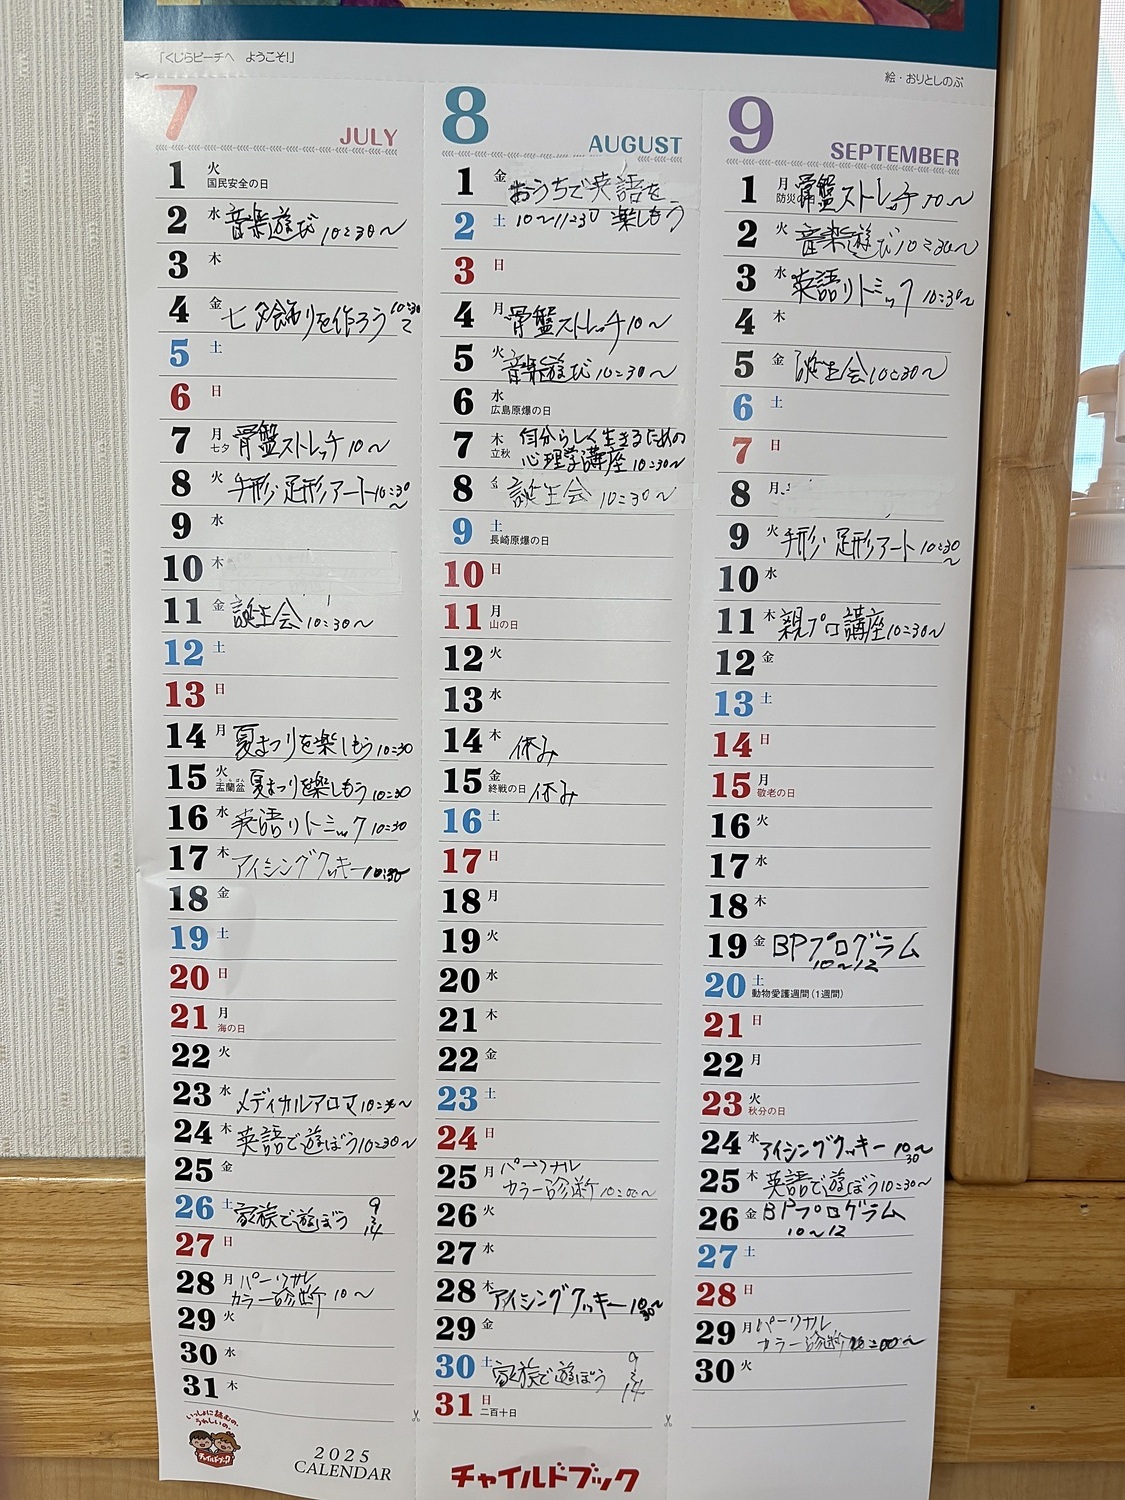 「くじらビーチへ ようこそ!」
絵・おりとしのぶ
7 JULY
1 火 国民安全の日
2 水 音楽遊び 10:30〜
3 木
4 金 七夕飾りを作ろう 10:30〜
5 土
6 日
7 月 七夕 骨盤ストレッチ 10〜
8 火 手形・足形アート 10:30〜
9 水
10 木
11 金 誕生会 10:30〜
12 土
13 日
14 月 夏まつりを楽しもう 10:30
15 火 盂蘭盆 夏まつりを楽しもう 10:30
16 水 英語リトミック 10:30
17 木 アイシングクッキー 10:30〜
18 金
19 土
20 日
21 月 海の日
22 火
23 水 メディカルアロマ 10:30〜
24 木 英語で遊ぼう 10:30〜
25 金
26 土 家族で遊ぼう 9〜14
27 日
28 月 パーソナル
カラー診断 10〜
29 火
30 水
31 木
いっしょに読むの、
うれしいの。
チャイルドブック
2025
CALENDAR
8 AUGUST
1 金 おうちで英語を
2 土 10〜11:30 楽しもう
3 日
4 月 骨盤ストレッチ 10〜
5 火 音楽遊び 10:30〜
6 水 広島原爆の日
7 木 立秋 自分らしく生きるための
心理学講座 10:30〜
8 金 誕生会 10:30〜
9 土 長崎原爆の日
10 日
11 月 山の日
12 火
13 水
14 木 休み
15 金 終戦の日 休み
16 土
17 日
18 月
19 火
20 水
21 木
22 金
23 土
24 日
25 月 パーソナル
カラー診断 10:00〜
26 火
27 水
28 木 アイシングクッキー 10:30〜
29 金
30 土 家族で遊ぼう 9〜14
31 日 二百十日
チャイルドブック
9 SEPTEMBER
1 月 防災 骨盤ストレッチ 10〜
2 火 音楽遊び 10:30〜
3 水 英語リトミック 10:30〜
4 木
5 金 誕生会 10:30〜
6 土
7 日
8 月
9 火 手形・足形アート 10:30〜
10 水
11 木 親プロ講座 10:30〜
12 金
13 土
14 日
15 月 敬老の日
16 火
17 水
18 木
19 金 BPプログラム
10〜12
20 土 動物愛護週間(1週間)
21 日
22 月
23 火 秋分の日
24 水 アイシングクッキー 10:30〜
25 木 英語で遊ぼう 10:30〜
26 金 BPプログラム
10〜12
27 土
28 日
29 月 パーソナル
カラー診断 10:00〜
30 火